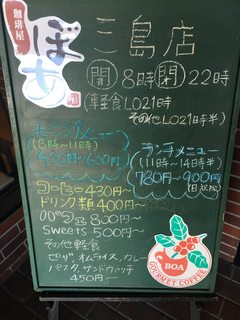 珈琲屋
ぼあ
三島店
開 8時 閉 22時
(軽食LO21時
その他LO21時半)
モーニングメニュー
(8時〜11時)
430円〜600円
ランチメニュー
(11時〜14時半)
780円〜900円
コーヒー 430円〜
ドリンク類 400円〜
パフェ 800円〜
sweets 500円〜
その他軽食
ピザ、オムライス、カレー
パスタ、サンドウィッチ
450円〜
BOA
GOURMET COFFEE